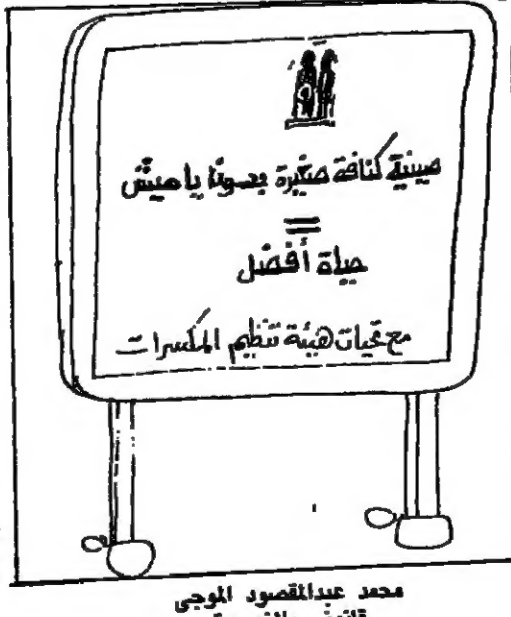 صينية كنافة صغيرة بدون ياميش
=
حياة أفضل
مع تحيات هيئة تنظيم المكسرات
محمد عبدالمقصود الموجى